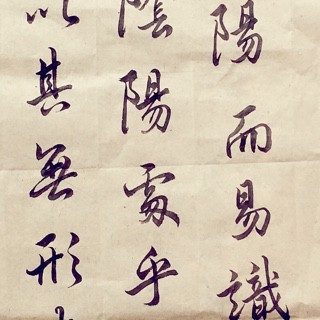 陽而易識
陰陽處乎
以其無形